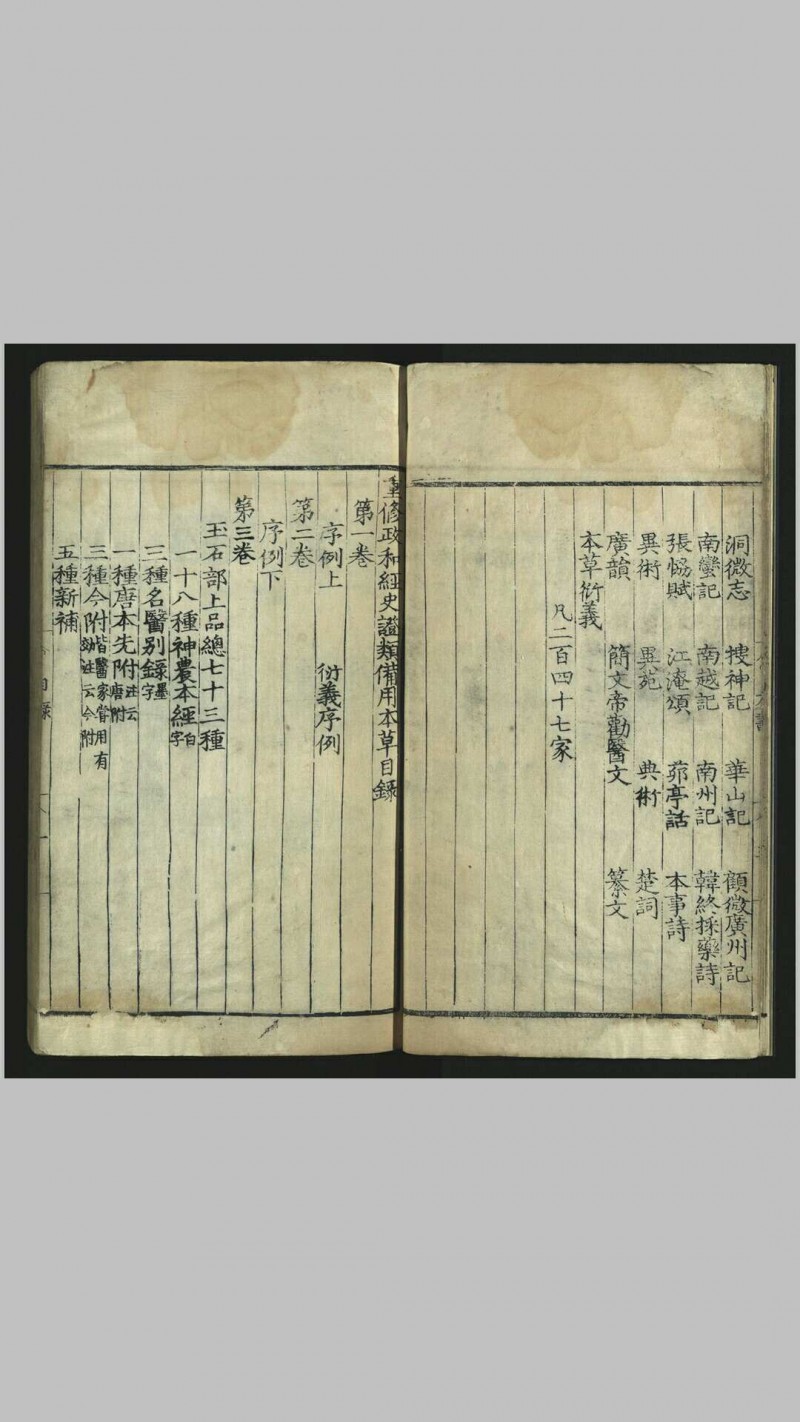 洞微志 搜神記 華山記 顧微廣州記
南蠻記 南越記 南州記 韓終採藥詩
張恊賦 江淹頌 茆亭話 本事詩
異術 異苑 典術 楚詞
廣韻 簡文帝勸醫文 纂文
本草衍義
凡二百四十七家
重修政和經史證類備用本草目錄
第一卷
序例上 衍義序例
第二卷
序例下
第三卷
玉石部上品總七十三種
一十八種神農本經白字
三種名醫别錄墨字
一種唐本先附註云唐附
三種今附皆醫家嘗用有効註云今附
五種新補